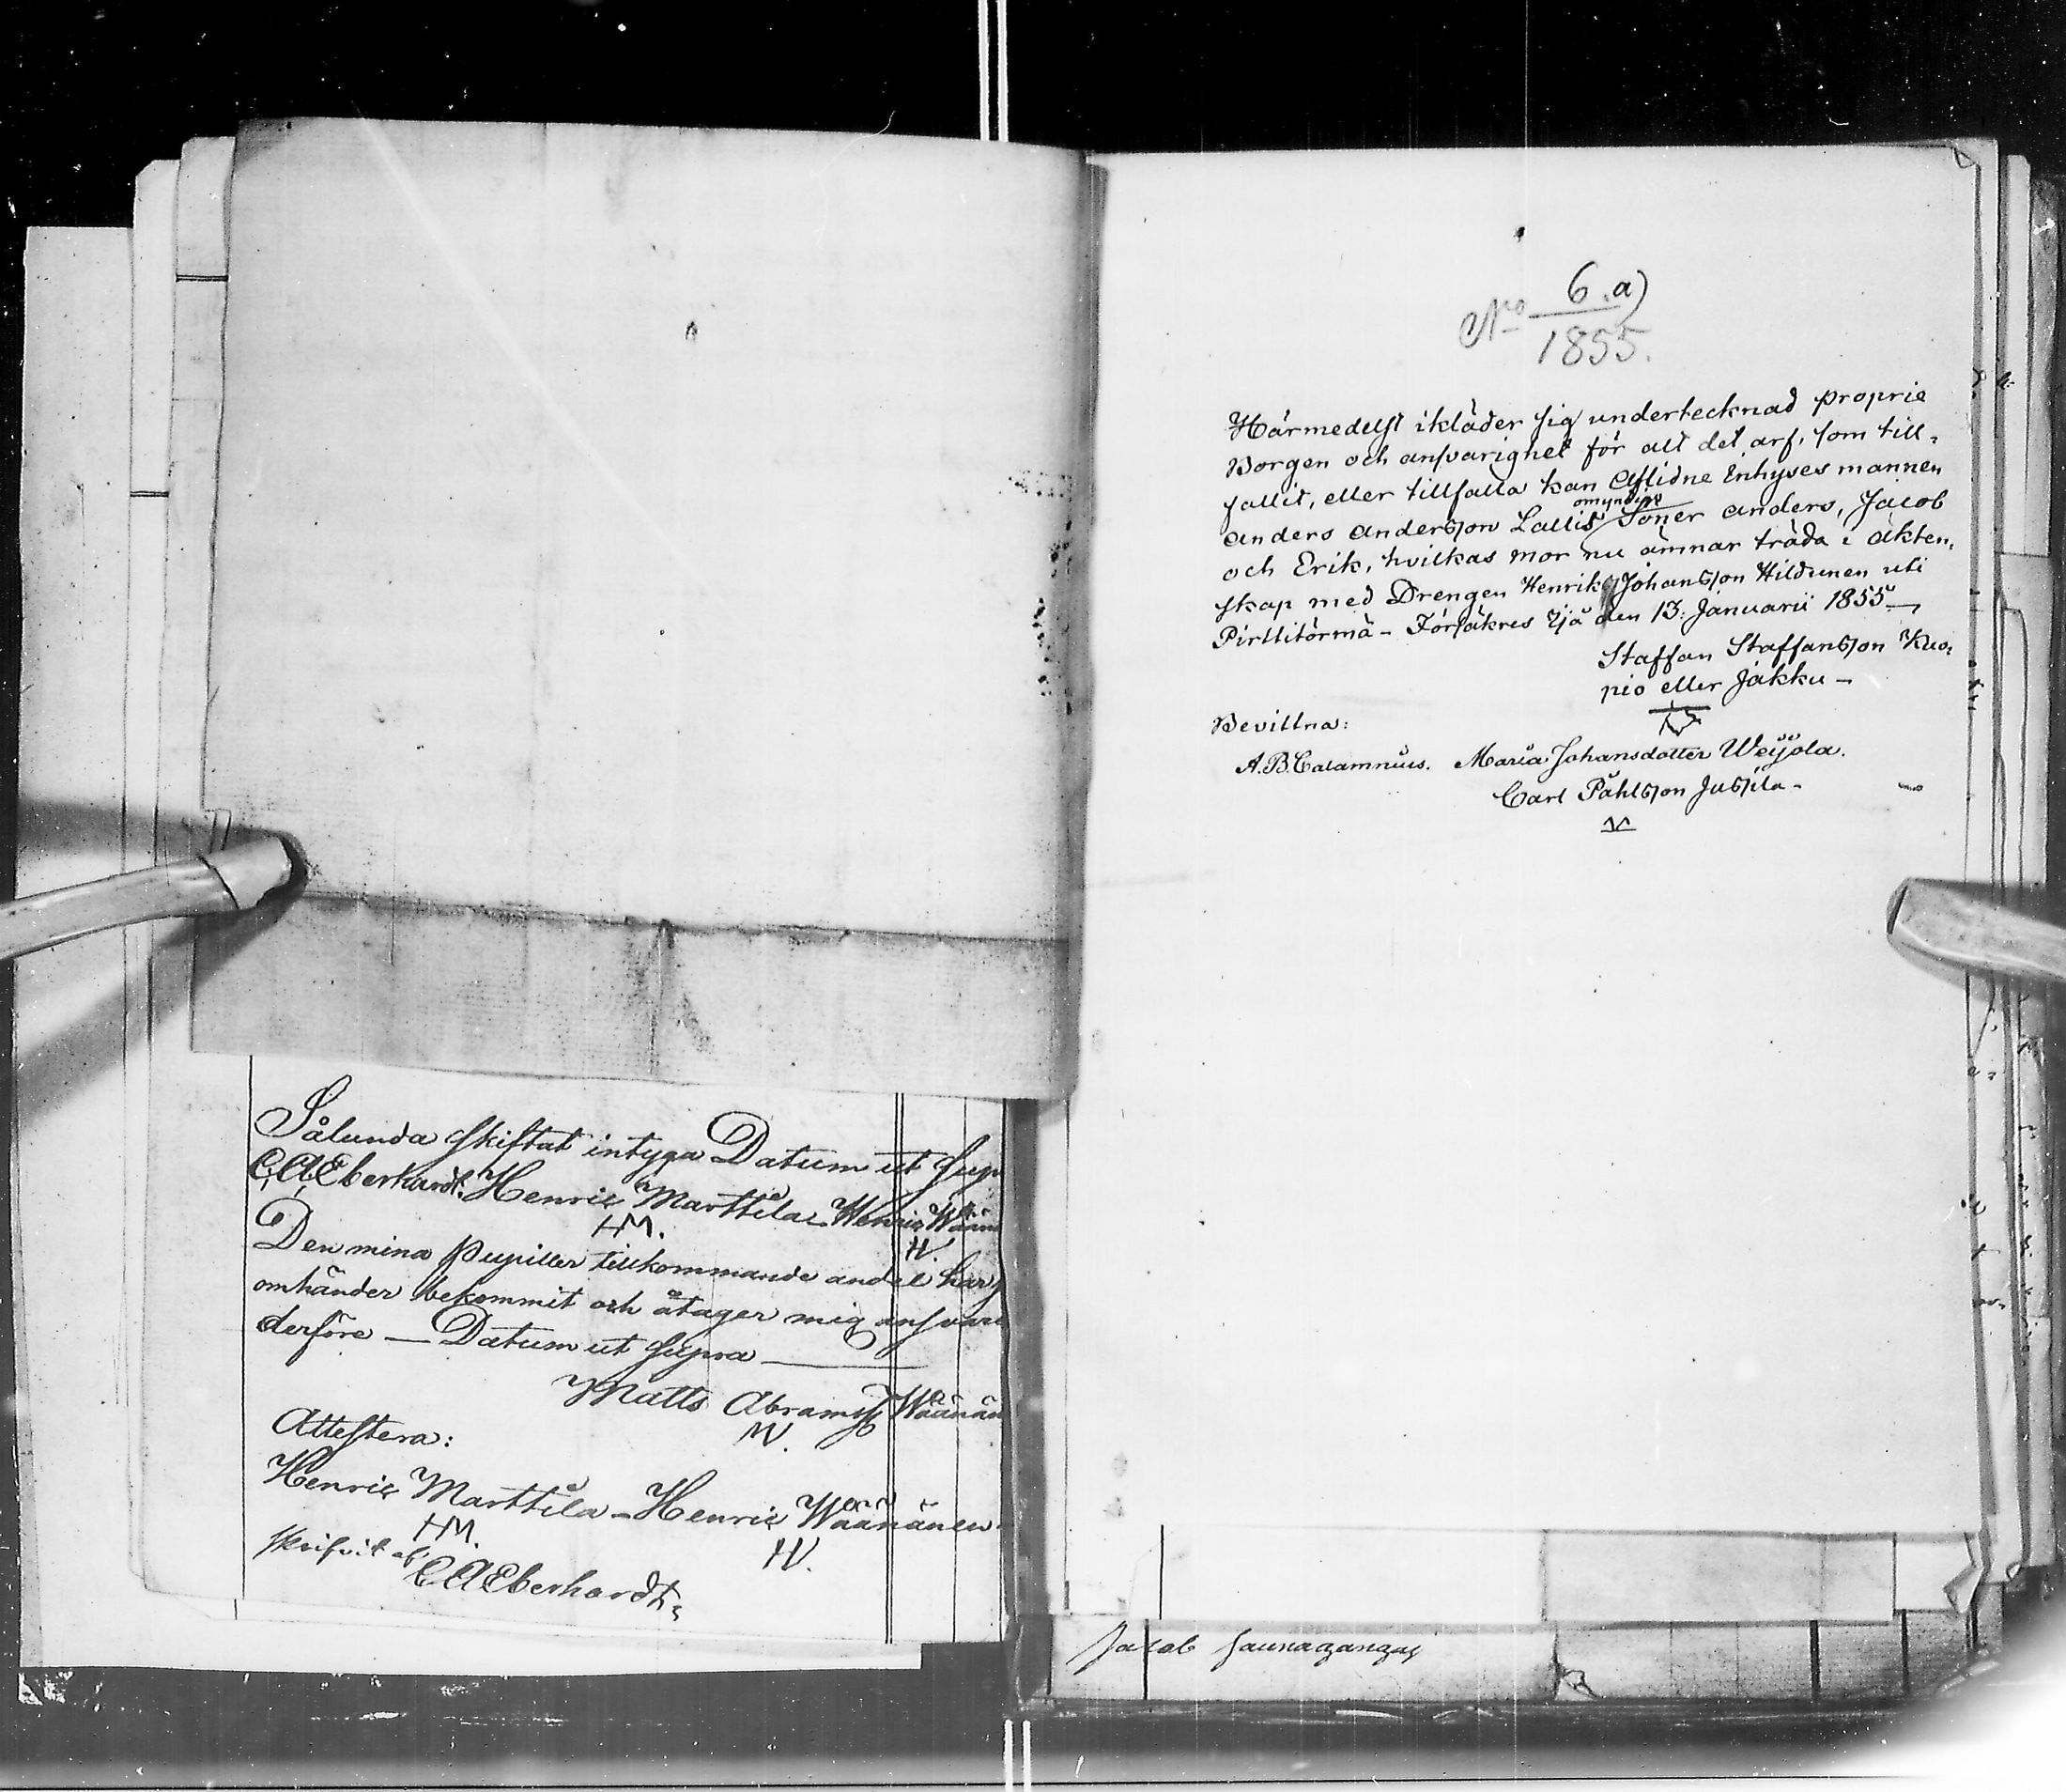 Sålunda skiftat intyga Datum ut sup
C, A, Eberhardt. Henric Marttila Henric Wään
HM.
H.
Den mina Pupiller tillkommande andel har j
omhänder bekommit och åtager mig ansvari
derföre — Datum ut supra —
Matts Abramss Wäänän
M.
Attestera:
Henric Marttila - Henric Wäänänen
HM.
H.
skrifvit af
C A Eberhardt.
No 6.a)
1855.
Härmedelst ikläder sig undertecknad proprie
Borgen och ansvarighet för alt det arf, som till-
fallit, eller tillfalla kan Aflidne Enhyses mannen
omyndige
Anders Andersson Lallis Söner Anders, Jacob
och Erik, hvilkas mor nu ämnar träda i äkten-
skap med Drengen Henrik Johansson Hildunen uti
Pirttitörmä - Försäkres Ijå den 13: Januarii 1855 —
Staffan Staffansson Kuo-
pio eller Jakku -
Bevittna:
A. B. Calamnius. Maria Johansdotter Weijola.
Carl Påhlsson Jussila -
Jacob